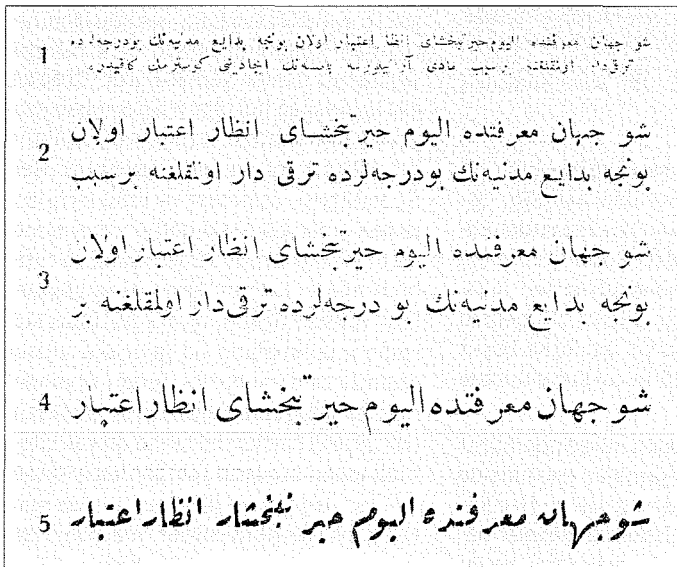 1 شو جهان معرفتده اليوم حيرتبخشاى انظار اعتبار اولان بونجه بدايع مدنيه‌نك بودرجه‌لرده
ترقى‌دار اولمقلغنه برسبب مادى
2 شو جهان معرفتده اليوم حيرتبخشــاى انظار اعتبار اولان
بونجه بدايع مدنيه‌نك بودرجه‌لرده ترقى دار اولمقلغنه برسبب
3 شو جهان معرفتده اليوم حيرتبخشاى انظار اعتبار اولان
بونجه بدايع مدنيه‌نك بو درجه‌لرده ترقى‌دار اولمقلغنه بر
4 شو جهان معرفتده اليوم حيرتبخشاى انظار اعتبار
5 شو جهان معرفتده اليوم حيرتبخشاى انظار اعتبار